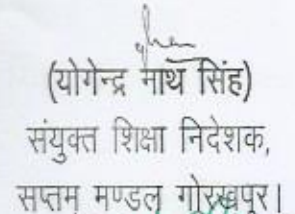 (योगेन्द्र नाथ सिंह)
संयुक्त शिक्षा निदेशक,
सप्तम् मण्डल गोरखपुर।